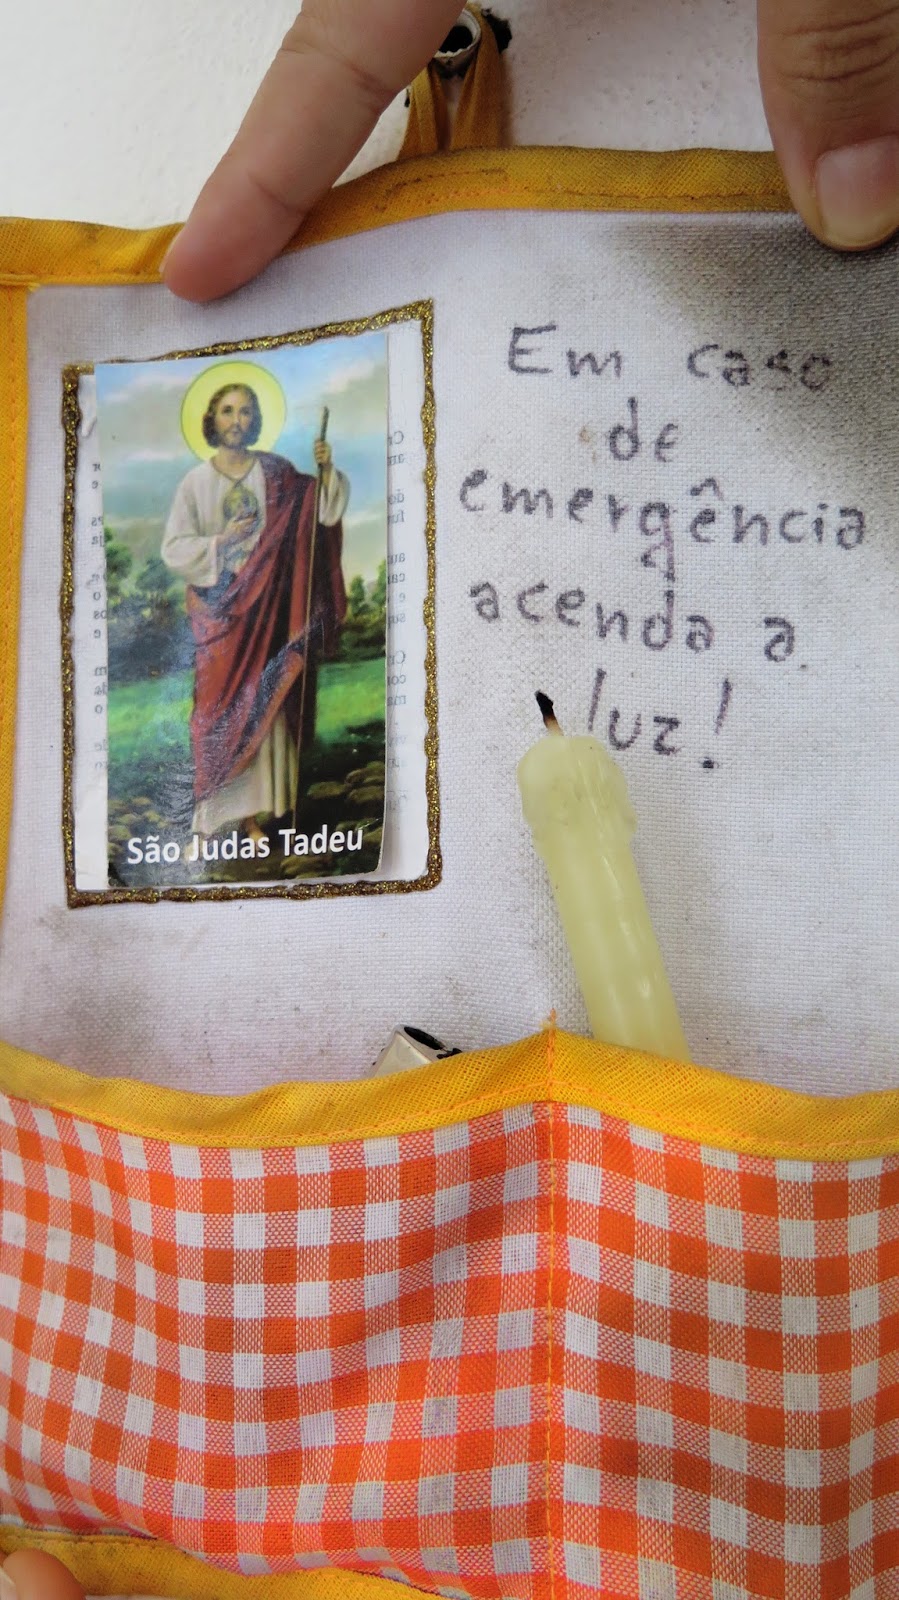 São Judas Tadeu
Em caso
de
emergência
acenda a
luz!